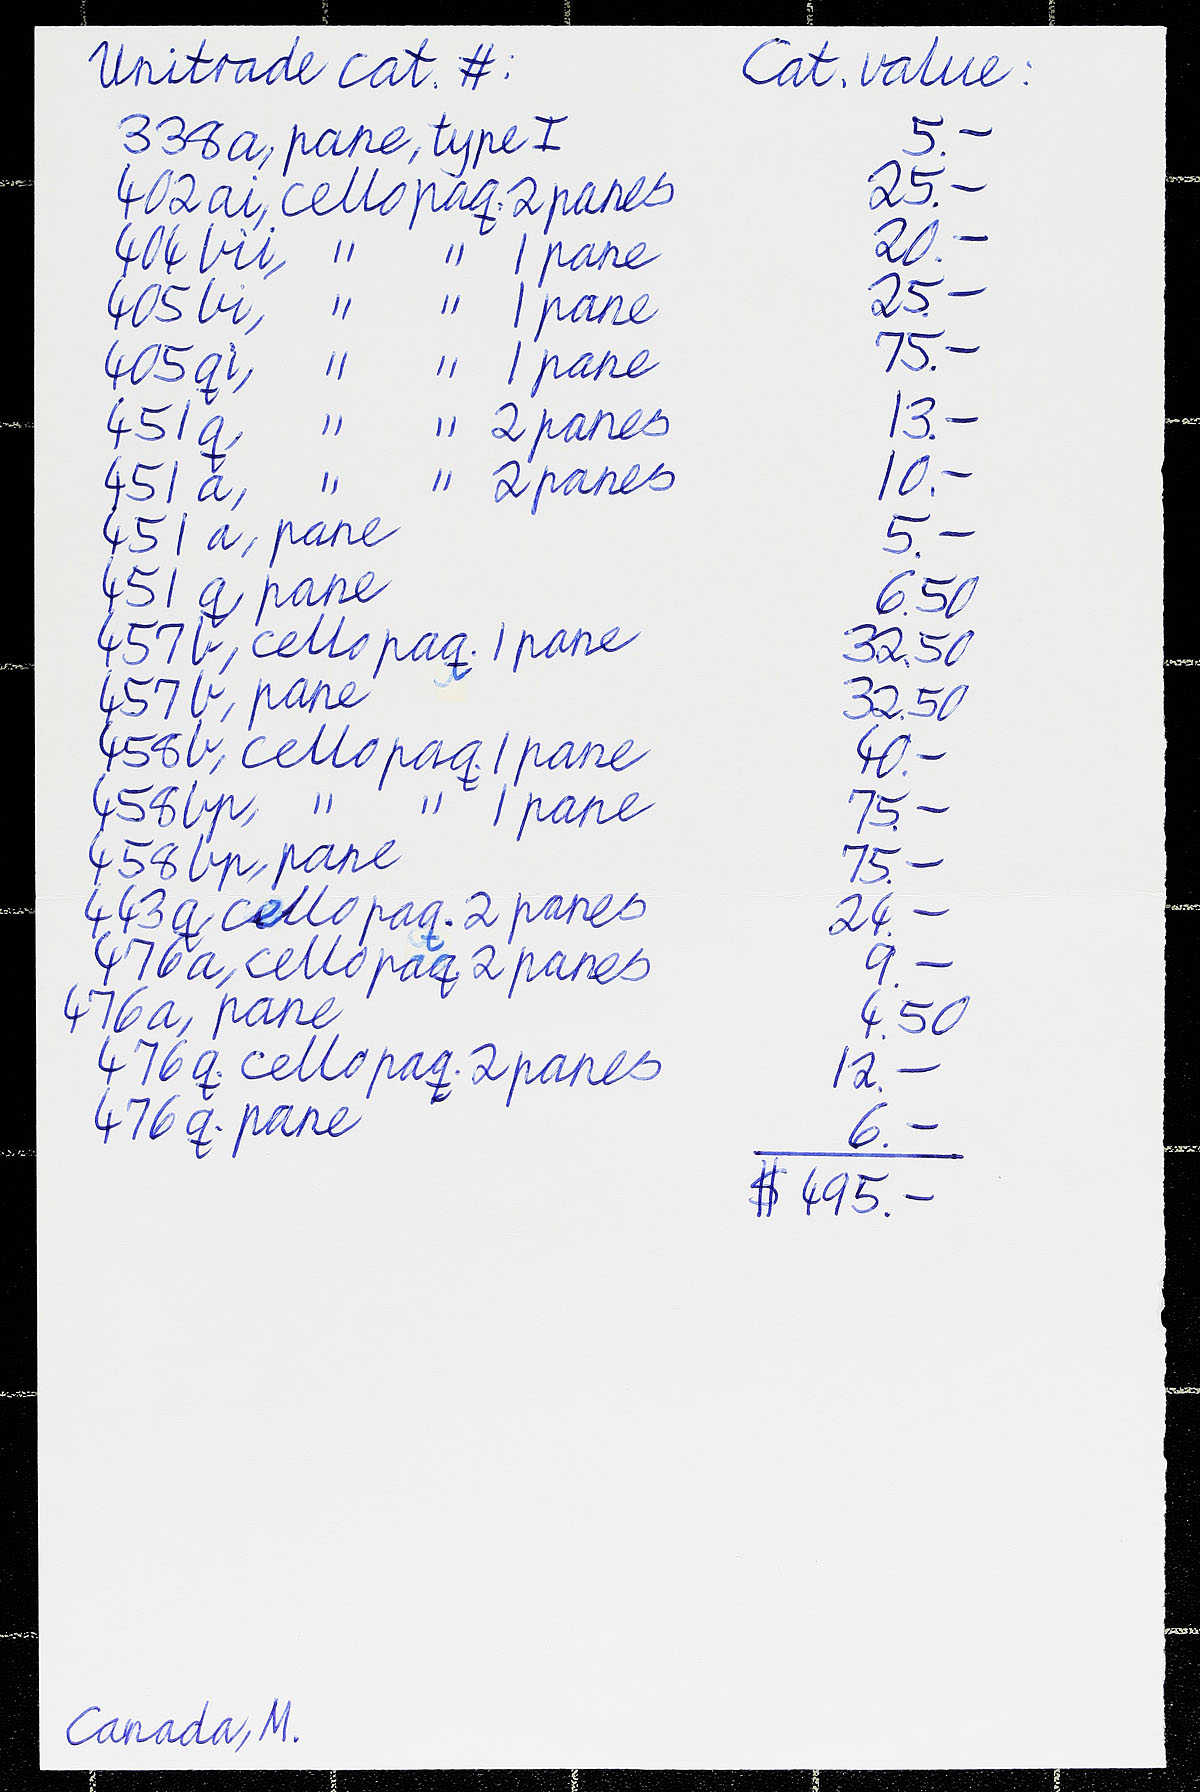 Unitrade cat. #: Cat. value:
338a, pane, type I 5.-
402ai, cello paq. 2 panes 25.-
404bii, " " 1 pane 20.-
405bi, " " 1 pane 25.-
405qi, " " 1 pane 75.-
451q, " " 2 panes 13.-
451a, " " 2 panes 10.-
451a, pane 5.-
451q, pane 6.50
457b, cello paq. 1 pane 32.50
457b, pane 32.50
458b, cello paq. 1 pane 40.-
458bp, " " 1 pane 75.-
458bp, pane 75.-
443q, cello paq. 2 panes 24.-
476a, cello paq. 2 panes 9.-
476a, pane 4.50
476q. cello paq. 2 panes 12.-
476q. pane 6.-
$ 495.-
Canada, M.